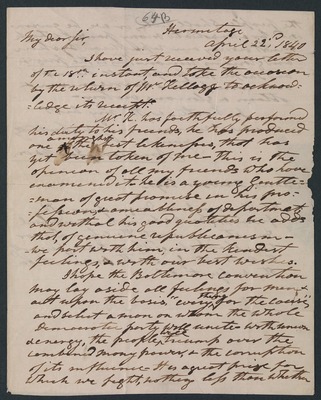 648
Hermitage
April 22nd 1840
My dear Sir,
I have just received your letter
of the 18th instant and take the occasion
by the return of Mr Kellogg to acknow-
ledge its receipt.
Mr. K. has faithfully performed
his duty to his friends, he has produced
one of the best likenesses, that has
yet been taken of me - this is the
opinion of all my friends who have
examined it - he is a young gentle-
man of great promise in his pro-
fession & amiableness of deportment,
and withal his good qualities we add
that, of genuine republicanism -
we part with him, in the kindest
feelings, & with our best wishes.
I hope the Baltimore convention
may lay aside all feelings for men &
act upon the basis "everything for the cause",
and select a man on whom the whole
Democratic party will unite with union
& energy, the people will triumph over the
combined money power, & the corruption
of its influence. It is a great prize for
which we fight, nothing less than whether